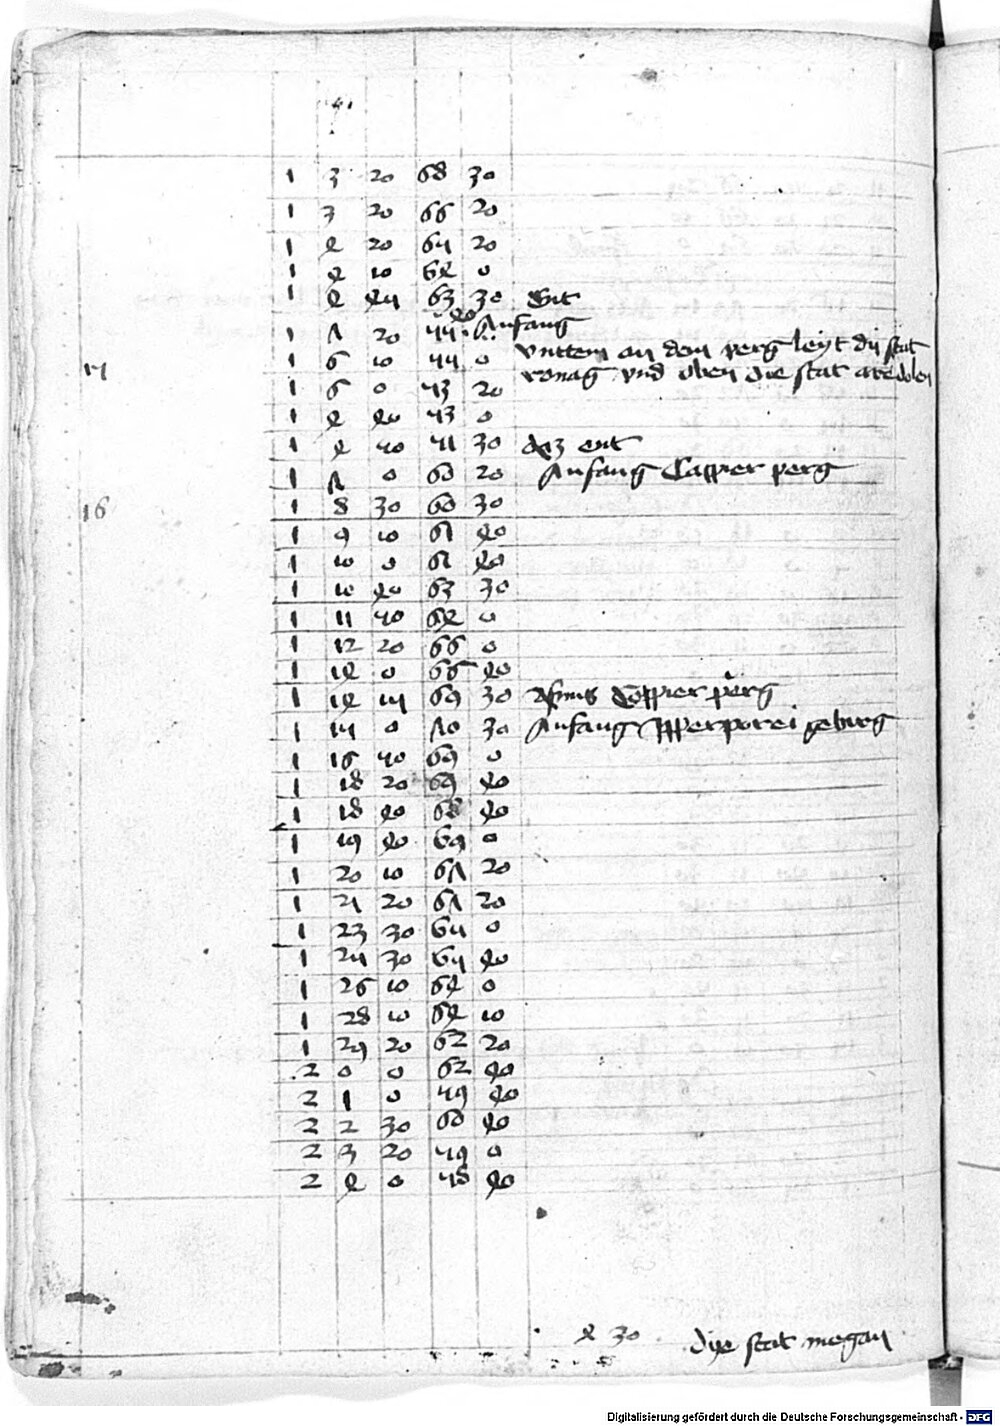 1 3 20 68 30
1 3 20 66 20
1 4 20 65 20
1 4 10 64 0
1 4 45 63 30 Ent
1 7 20 55 40 Anfang
15 1 6 10 55 0 vnttem an dem perg leyt die stat
1 6 0 53 20 vnd oben die stat
1 4 40 53 0
1 4 50 51 30 daz ent
1 7 0 60 20 Anfang Caspier perg
16 1 8 30 60 30
1 9 10 61 40
1 10 0 61 40
1 10 40 63 30
1 11 50 64 0
1 12 20 66 0
1 14 0 66 40
1 14 15 69 30 Caspier perg
1 15 0 70 30 Anfang Ypperporei gebirg
1 16 50 69 0
1 18 20 69 40
1 18 40 68 40
1 19 40 69 0
1 20 10 67 20
1 21 20 67 20
1 23 30 65 0
1 25 30 65 40
1 26 10 64 0
1 28 10 64 10
1 29 20 62 20
2 0 0 62 40
2 1 0 59 40
2 2 30 60 40
2 3 20 59 0
2 4 0 58 40
4 30 dye stat megan
Digitalisierung gefördert durch die Deutsche Forschungsgemeinschaft - DFG